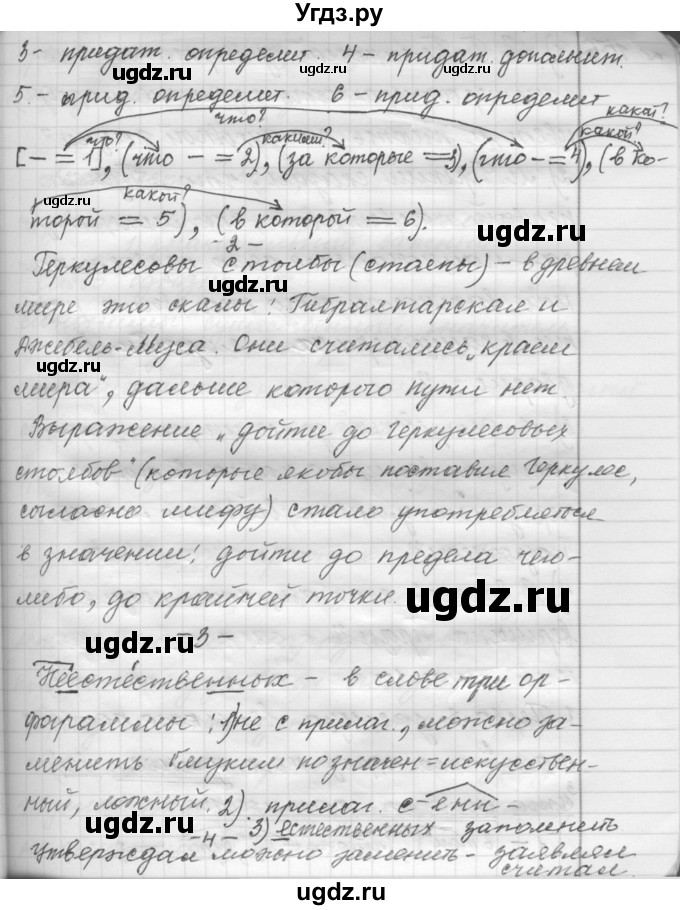 Угдз.ру
3 - придат. определит. 4 - придат. дополнит.
ugdz.ru ugdz.ru
5. - прид. определит. 6 - прид. определит
что? какой?
что? каким? какой?
[ - = 1], (что - = 2), (за которые = 3), (что - = 4), (в ко-
какой?
торой = 5), (в которой = 6).
- 2 -
ugdz.ru ugdz.ru
Геркулесовы столбы (стелы) - в древнем
мире это скалы: Гибралтарская и
ugdz.ru
Джебель-Муса. Они считались „краем
ugdz.ru
мира“, дальше которого пути нет.
Выражение „дойти до Геркулесовых
ugdz.ru
столбов“ (которые якобы поставил Геркулес,
согласно мифу) стало употребляться
ugdz.ru ugdz.ru
в значении: дойти до предела чего-
либо, до крайней точки.
ugdz.ru
ugdz.ru
- 3 -
Неестественных - в слове три ор-
ugdz.ru
фограммы: 1) не с прилаг., можно за-
менить близким по значен = искусствен-
ugdz.ru
ный, ложный. 2) прилаг. с -енн-
ugdz.ru
- 4 - 3) естественных запомнить
Утверждал можно заменить - заявлял
ugdz.ru
считал.
ugdz.ru